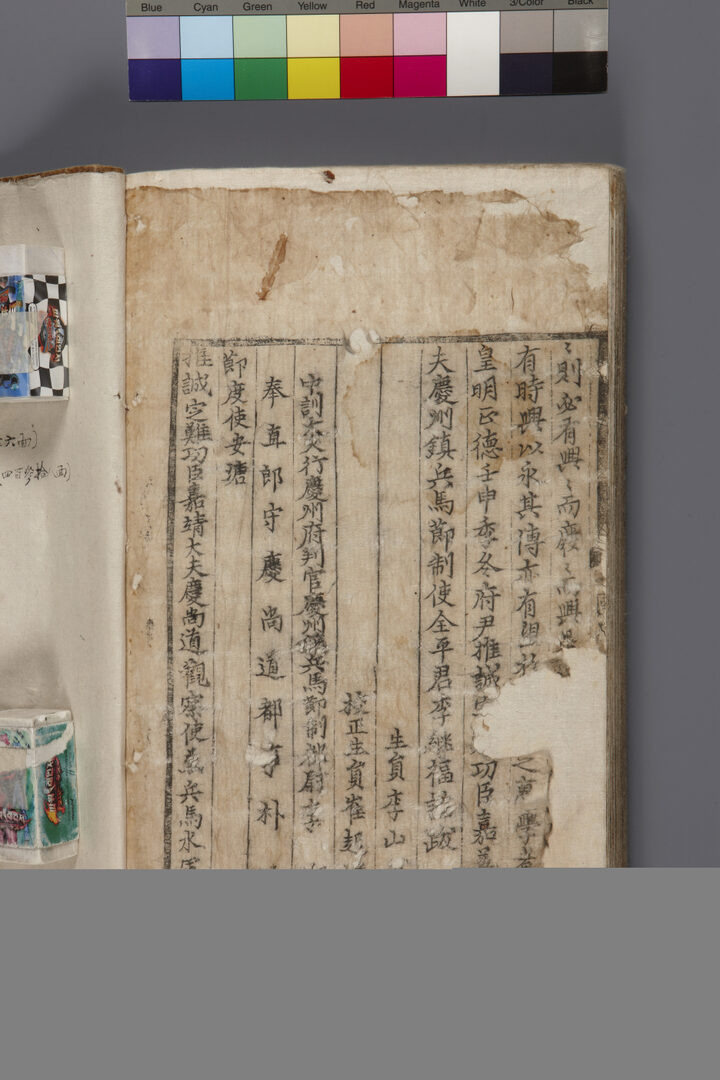 Blue Cyan Green Yellow Red Magenta White 3/Color Black
〻則必有興〻而廢〻而興
有時興以永其傳亦有望 之惠學者
皇明正德壬申季冬府尹推誠 功臣嘉善
夫慶州鎮兵馬節制使全平君李繼福謹跋
生員李山
校正生員崔起
中訓大夫行慶州府判官慶州鎮兵馬節制都尉李
奉直郎守慶尚道都事朴
節度使安瑭
推誠定難功臣嘉靖大夫慶尚道觀察使兼兵馬水軍